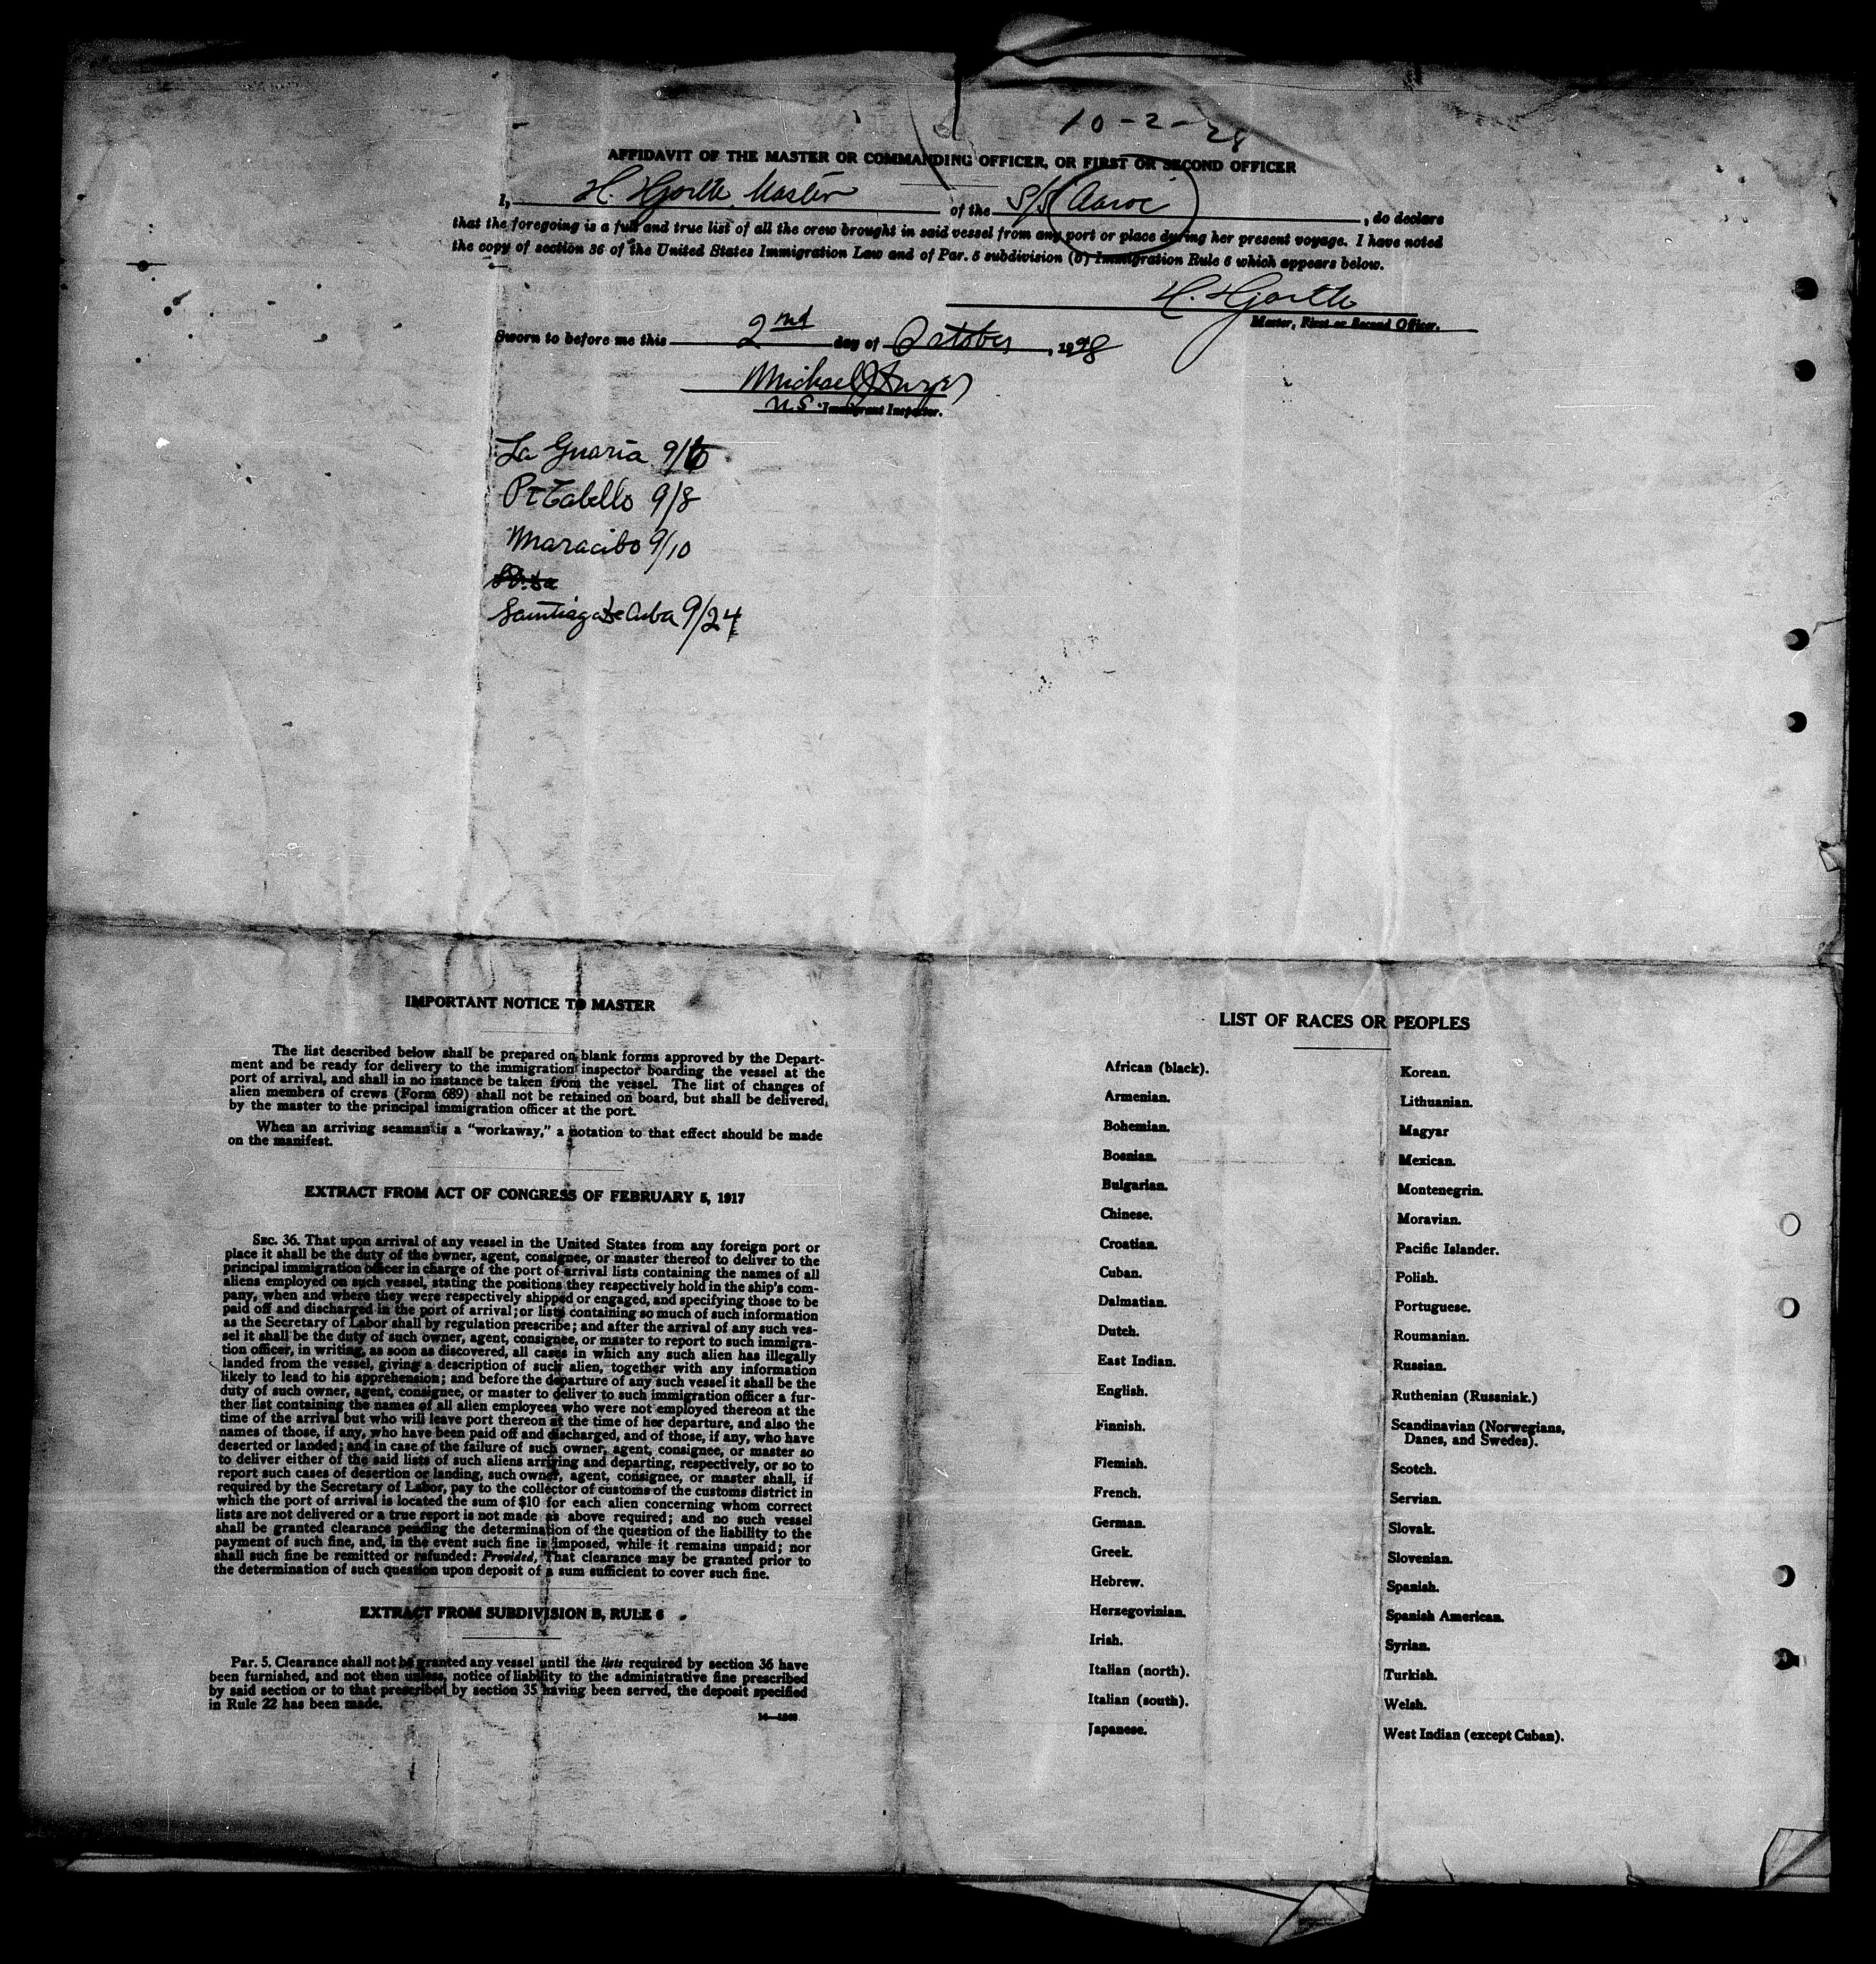 10-2-28
AFFIDAVIT OF THE MASTER OR COMMANDING OFFICER, OR FIRST OR SECOND OFFICER
I, H. Hjorth, Master of the S/S Aaroe, do declare
that the foregoing is a full and true list of all the crew brought in said vessel from any port or place during her present voyage. I have noted
the copy of section 36 of the United States Immigration Law and of Par. 5 subdivision (b) Immigration Rule 6 which appears below.
H. Hjorth
Master, First or Second Officer.
Sworn to before me this 2nd day of October, 1928
Michael
U.S. Immigrant Inspector.
La Guaria 9/6
Pt Cabello 9/8
Maracibo 9/10
Santiago de Cuba 9/24
IMPORTANT NOTICE TO MASTER
The list described below shall be prepared on blank forms approved by the Depart-
ment and be ready for delivery to the immigration inspector boarding the vessel at the
port of arrival, and shall in no instance be taken from the vessel. The list of changes of
alien members of crews (Form 689) shall not be retained on board, but shall be delivered,
by the master to the principal immigration officer at the port.
When an arriving seaman is a "workaway," a notation to that effect should be made
on the manifest.
EXTRACT FROM ACT OF CONGRESS OF FEBRUARY 5, 1917
SEC. 36. That upon arrival of any vessel in the United States from any foreign port or
place it shall be the duty of the owner, agent, consignee, or master thereof to deliver to the
principal immigration officer in charge of the port of arrival lists containing the names of all
aliens employed on such vessel, stating the positions they respectively hold in the ship's com-
pany, when and where they were respectively shipped or engaged, and specifying those to be
paid off and discharged in the port of arrival; or lists containing so much of such information
as the Secretary of Labor shall by regulation prescribe; and after the arrival of any such ves-
sel it shall be the duty of such owner, agent, consignee, or master to report to such immigra-
tion officer, in writing, as soon as discovered, all cases in which any such alien has illegally
landed from the vessel, giving a description of such alien, together with any information
likely to lead to his apprehension; and before the departure of any such vessel it shall be the
duty of such owner, agent, consignee, or master to deliver to such immigration officer a fur-
ther list containing the names of all alien employees who were not employed thereon at the
time of the arrival but who will leave port thereon at the time of her departure, and also the
names of those, if any, who have been paid off and discharged, and of those, if any, who have
deserted or landed; and in case of the failure of such owner, agent, consignee, or master so
to deliver either of the said lists of such aliens arriving and departing, respectively, or so to
report such cases of desertion or landing, such owner, agent, consignee, or master shall, if
required by the Secretary of Labor, pay to the collector of customs of the customs district in
which the port of arrival is located the sum of $10 for each alien concerning whom correct
lists are not delivered or a true report is not made as above required; and no such vessel
shall be granted clearance pending the determination of the question of the liability to the
payment of such fine, and, in the event such fine is imposed, while it remains unpaid; nor
shall such fine be remitted or refunded: Provided, That clearance may be granted prior to
the determination of such question upon deposit of a sum sufficient to cover such fine.
EXTRACT FROM SUBDIVISION B, RULE 6
Par. 5. Clearance shall not be granted any vessel until the lists required by section 36 have
been furnished, and not then unless, notice of liability to the administrative fine prescribed
by said section or to that prescribed by section 35 having been served, the deposit specified
in Rule 22 has been made.
LIST OF RACES OR PEOPLES
African (black).
Armenian.
Bohemian.
Bosnian.
Bulgarian.
Chinese.
Croatian.
Cuban.
Dalmatian.
Dutch.
East Indian.
English.
Finnish.
Flemish.
French.
German.
Greek.
Hebrew.
Herzegovinian.
Irish.
Italian (north).
Italian (south).
Japanese.
Korean.
Lithuanian.
Magyar
Mexican.
Montenegrin.
Moravian.
Pacific Islander.
Polish.
Portuguese.
Roumanian.
Russian.
Ruthenian (Russniak.)
Scandinavian (Norwegians,
Danes, and Swedes).
Scotch.
Servian.
Slovak.
Slovenian.
Spanish.
Spanish American.
Syrian.
Turkish.
Welsh.
West Indian (except Cuban).